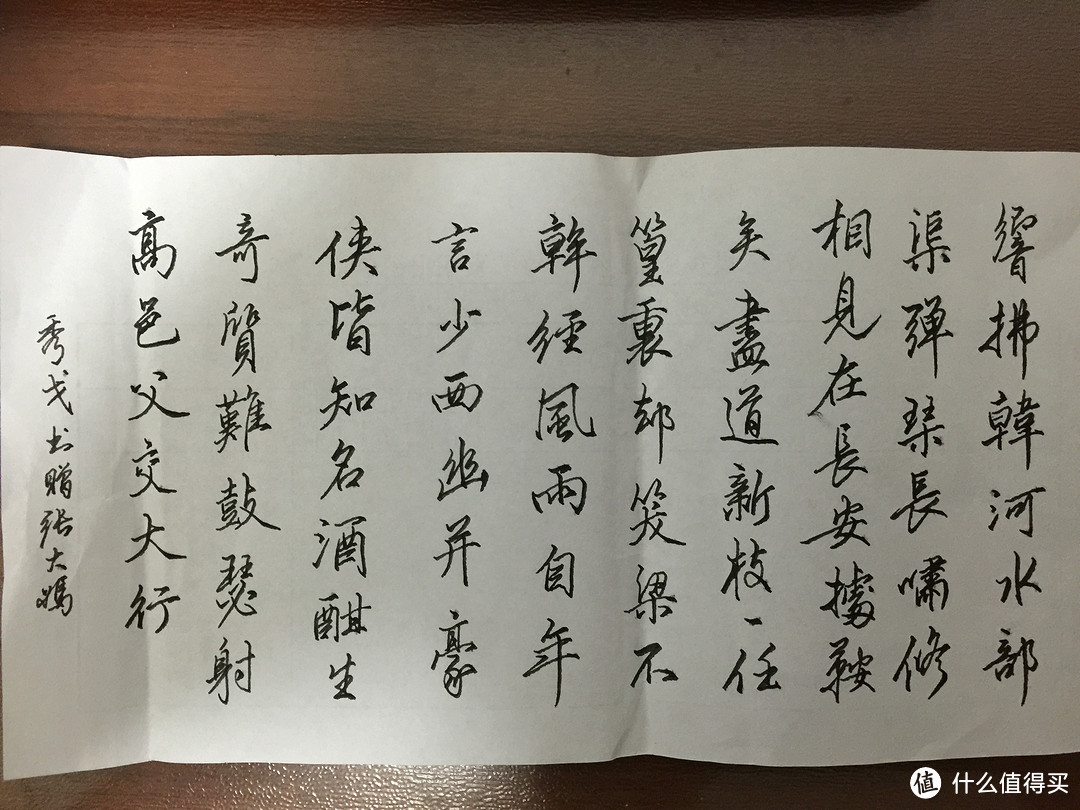 響拂韓河水部
渠弹琴長嘯修
相見在長安據鞍
矣盡道新枝一任
篁裏却笑梁不
幹經風雨自年
言少西幽并豪
侠皆知名酒酣生
奇質難鼓瑟射
高邑父交大行
秀戈书赠张大妈
值 什么值得买